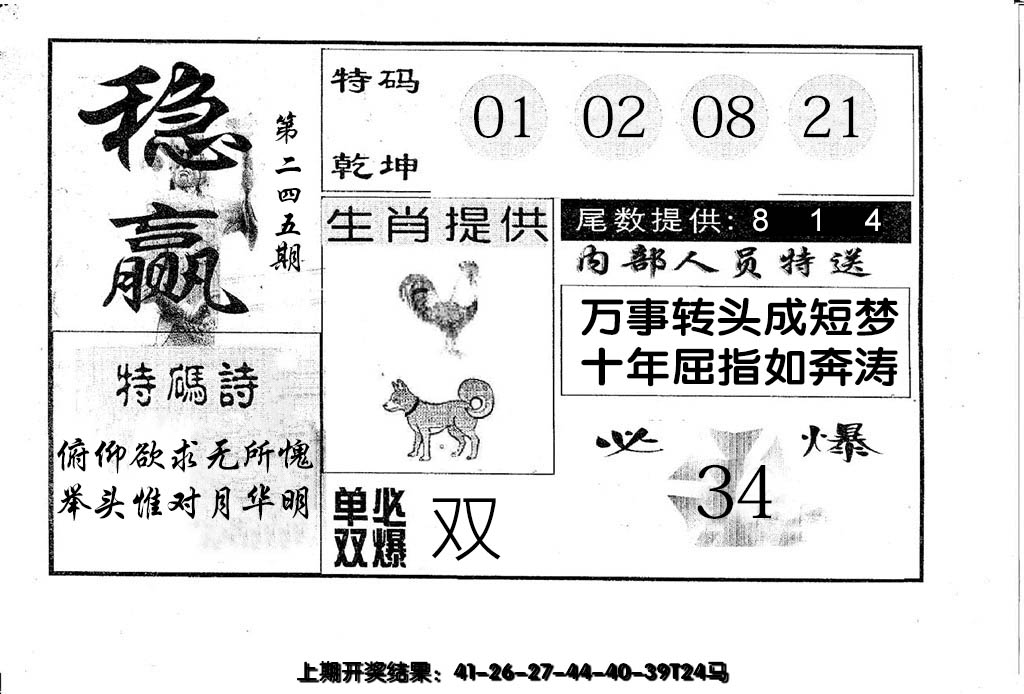 稳赢
第二四五期
特码诗
俯仰欲求无所愧
举头惟对月华明
特码
乾坤
01 02 08 21
生肖提供
单双
必爆
双
尾数提供: 8 1 4
内部人员特送
万事转头成短梦
十年屈指如奔涛
必爆
34
上期开奖结果：41-26-27-44-40-39T24马